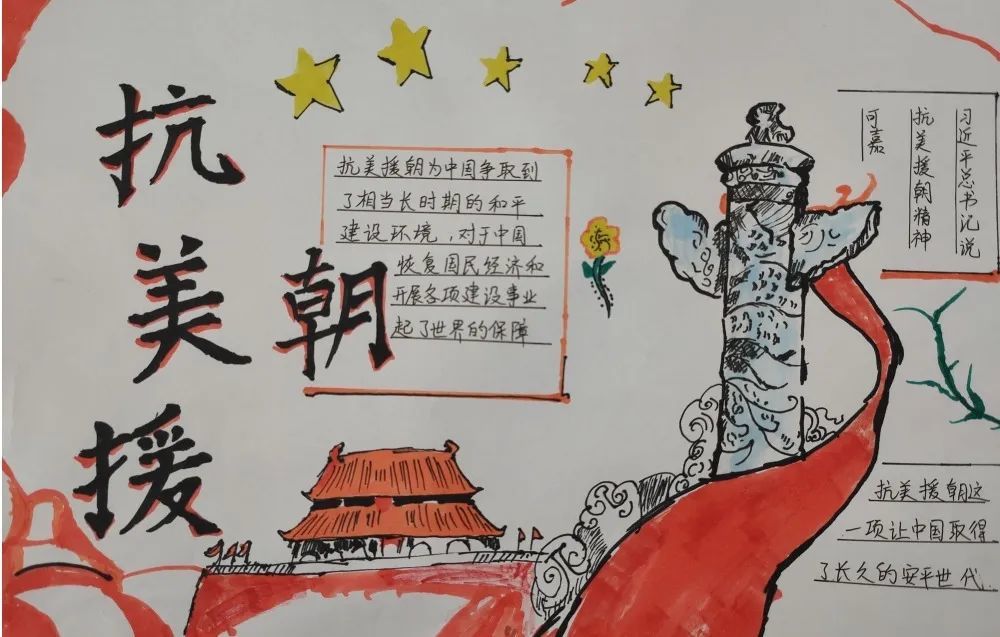 抗
美
援
朝
抗美援朝为中国争取到
了相当长时期的和平
建设环境，对于中国
恢复国民经济和
开展各项建设事业
起了世界的保障
习近平总书记说
抗美援朝精神
可嘉
抗美援朝这
一项让中国取得
了长久的安平世代